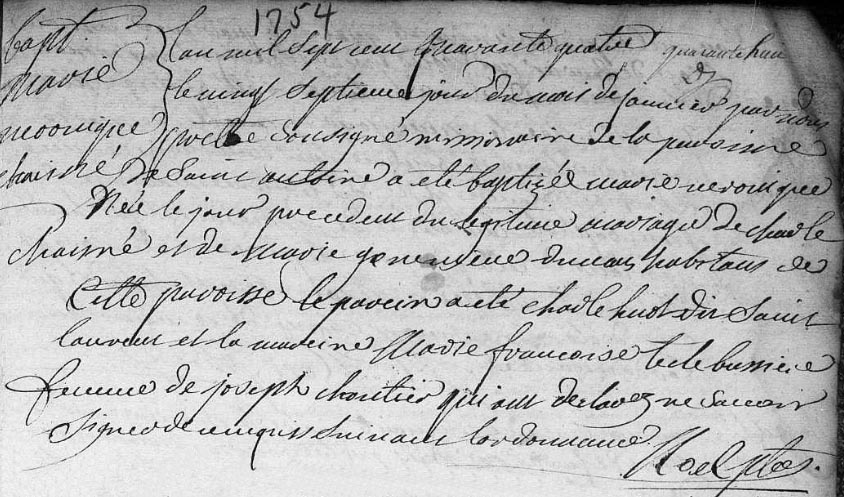 1754
bapt
Marie
veronique
chaisné
Lan mil sept cent quarante quatre
le vingt septieme jour du mois de janvier par nous
pretre soussigné missionnaire de la paroisse
De Saint antoine a eté baptizée marie veronique
Née le jour precedent du legitime mariage de charle
Chaisné et de Marie genevieve habitans de
Cette paroisse le parein a eté charle huot dit Saint
laurent et la mareine Marie francoise
femme de joseph qui ont declarez ne scavoir
Signer de ce enquis suivant lordonnance.
Noel ptre.